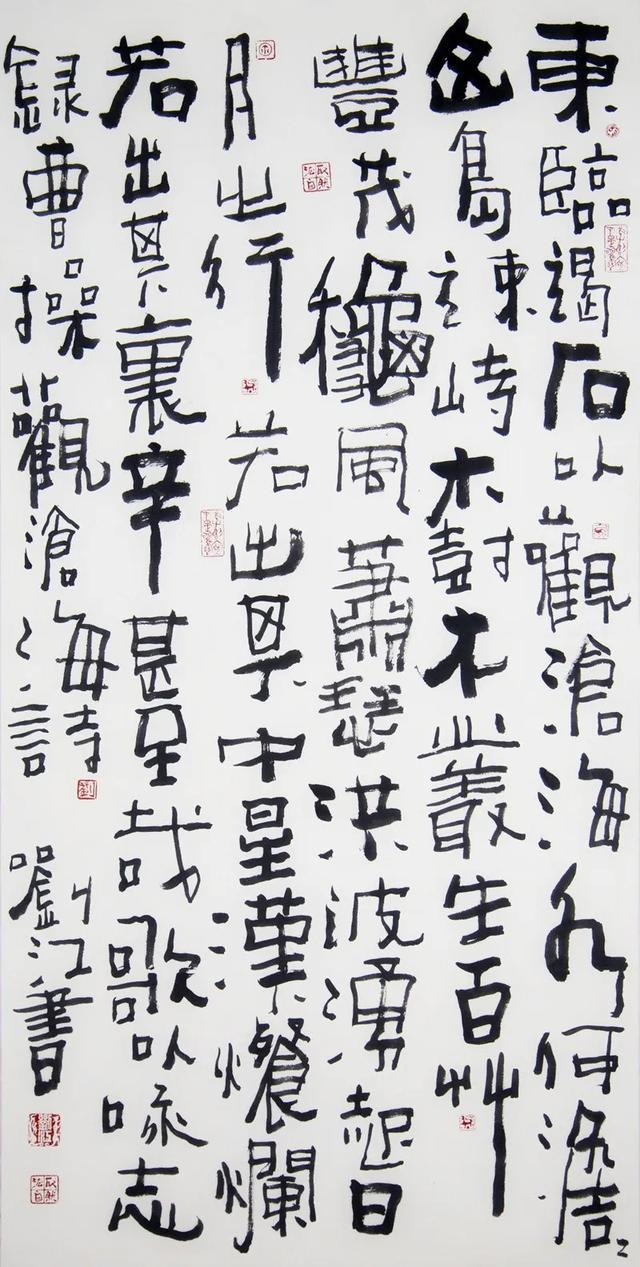 東臨碣石以觀滄海水何澹〻
山島竦峙樹木叢生百艸
豐茂龝風蕭瑟洪波湧起日
月之行若出其中星漢燦爛
若出其裏幸甚至哉歌以咏志
錄曹操觀滄海詩 劉江書